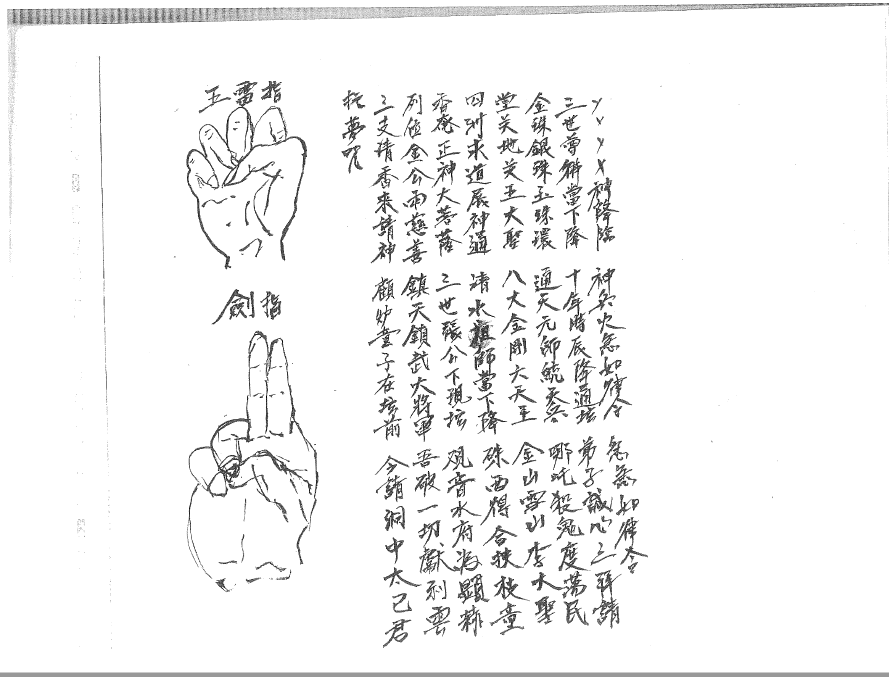 五雷指
劍指
夢咒
三支清香來請神 顧炉童子在坛前 今請洞中太己君
列位金公雨慈善 鎮天鎖武大將軍 吾破一切獻利雲
香 正神大菩薩 三世張公下現坛 观音水府 顯赫
四洲求道展神通 清水祖師當下降 珠西得合扶枝童
堂关地关王大聖 八大金剛大天王 金山雪山李大聖
金珠銀珠玉珠濃 通天元帥統天兵 哪吒殺鬼度蕩民
三世尊 當下降 十年時辰降通坛 弟子誠心三拜請
神降臨 神兵火急如律令 急急如律令